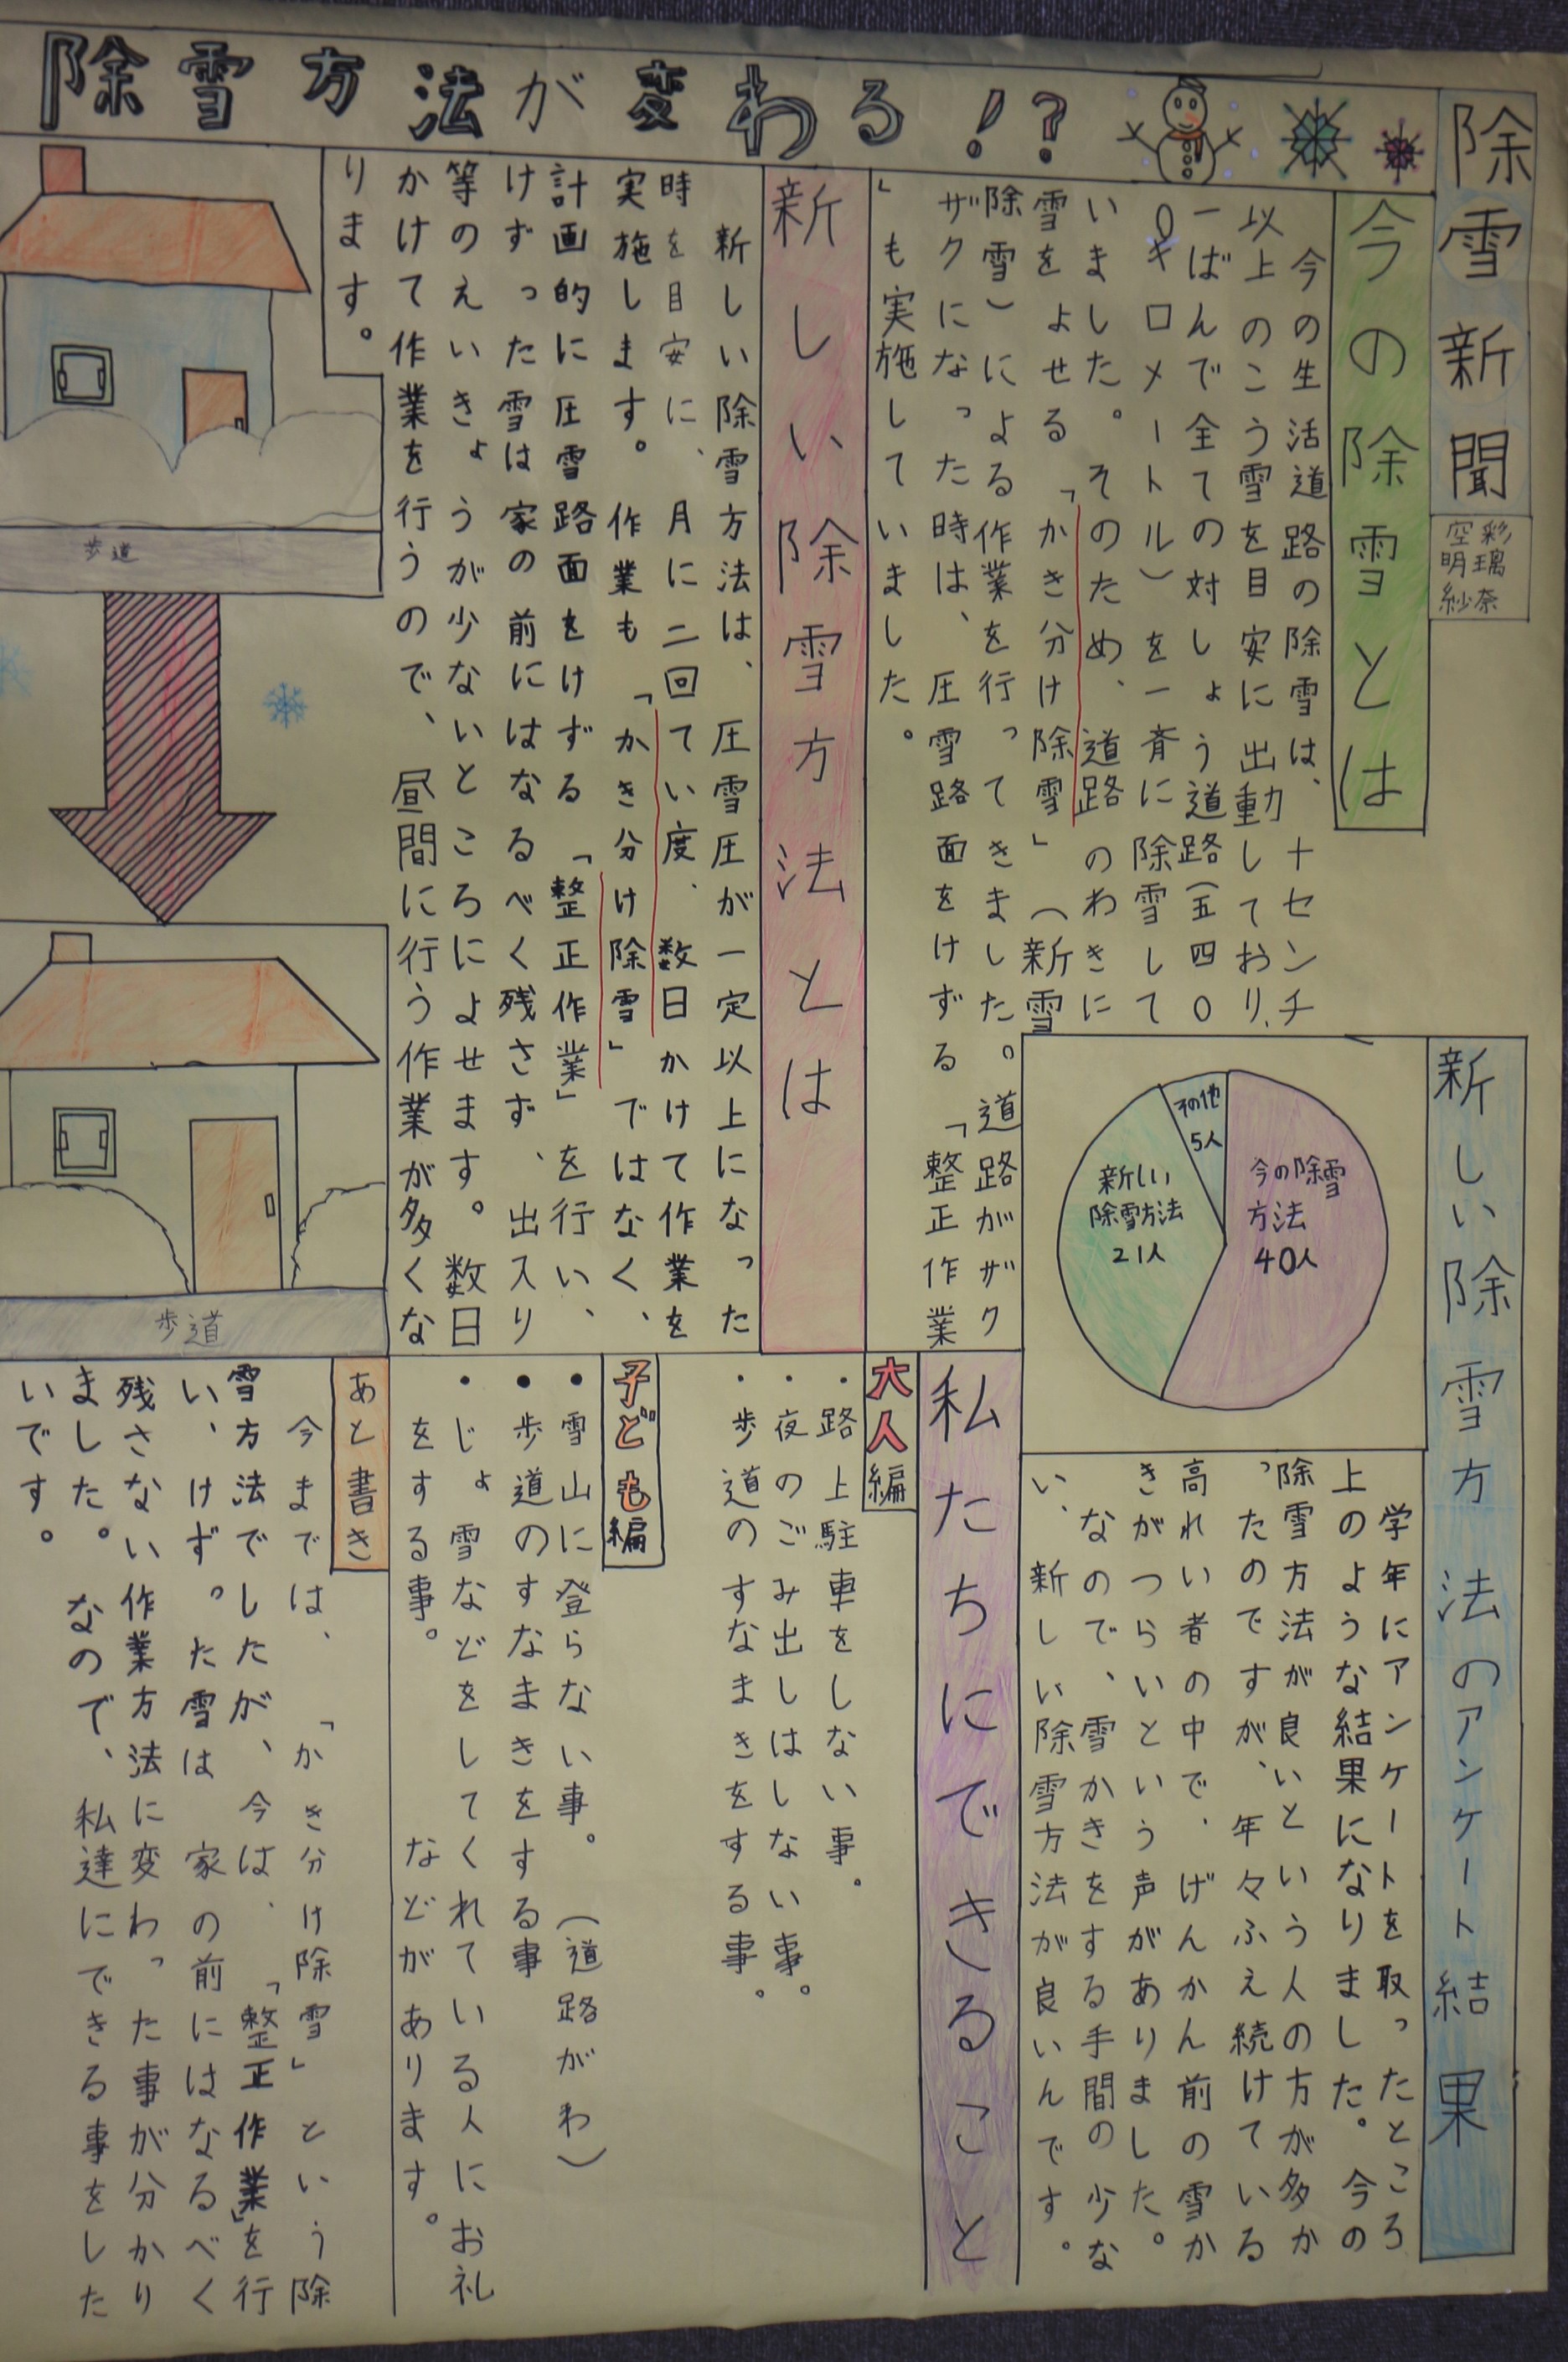 除雪新聞
彩璃奈
空明紗
除雪方法が変わる!?
今の除雪とは
今の生活道路の除雪は、十センチ
以上のこう雪を目安に出動しており、
一ばんで全ての対しょう道路(五四〇
〇キロメートル)を一斉に除雪して
いました。そのため、道路のわきに
雪をよせる「かき分け除雪」(新雪
除雪)による作業を行ってきました。道路がザク
ザクになった時は、圧雪路面をけずる「整正作業
」も実施していました。
新しい除雪方法とは
新しい除雪方法は、圧雪圧が一定以上になった
時を目安に、月に二回てい度、数日かけて作業を
実施します。作業も「かき分け除雪」ではなく、
計画的に圧雪路面をけずる「整正作業」を行い、
けずった雪は家の前にはなるべく残さず、出入り
等のえいきょうが少ないところによせます。数日
かけて作業を行うので、昼間に行う作業が多くな
ります。
歩道
歩道
新しい除雪方法のアンケート結果
今の除雪
方法
40人
新しい
除雪方法
21人
その他
5人
学年にアンケートを取ったところ
上のような結果になりました。今の
除雪方法が良いという人の方が多か
ったのですが、年々ふえ続けている
高れい者の中で、げんかん前の雪か
きがつらいという声がありました。
なので、雪かきをする手間の少な
い、新しい除雪方法が良いんです。
私たちにできること
大人編
・路上駐車をしない事。
・夜のごみ出しはしない事。
・歩道のすなまきをする事。
子ども編
・雪山に登らない事。(道路がわ)
・歩道のすなまきをする事
・じょ雪などをしてくれている人にお礼
をする事。 などがあります。
あと書き
今までは、「かき分け除雪」という除
雪方法でしたが、今は、「整正作業」を行
い、けずった雪は家の前にはなるべく
残さない作業方法に変わった事が分かり
ました。なので、私達にできる事をした
いです。